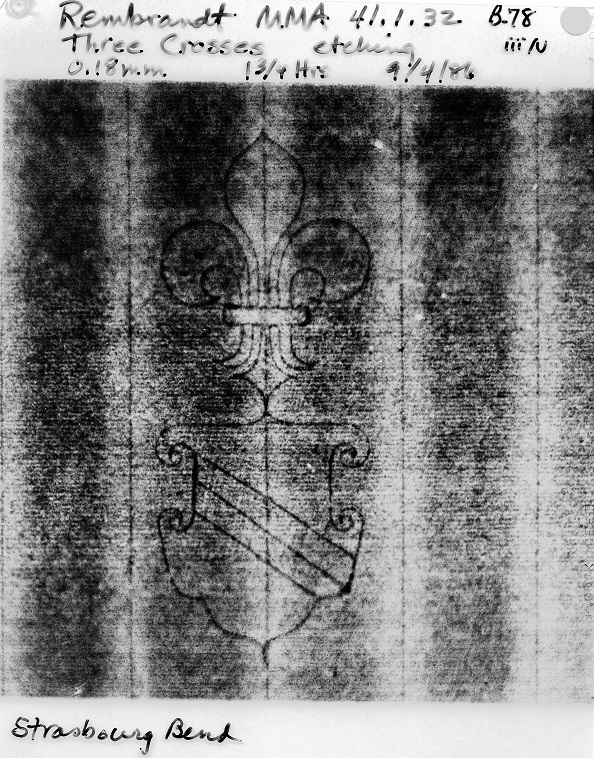 Rembrandt M.M.A. 41.1.32. B.78
Three Crosses etching iii/V
0.18 m.m. 1 3/4 Hrs 9/4/86
Strasbourg Bend